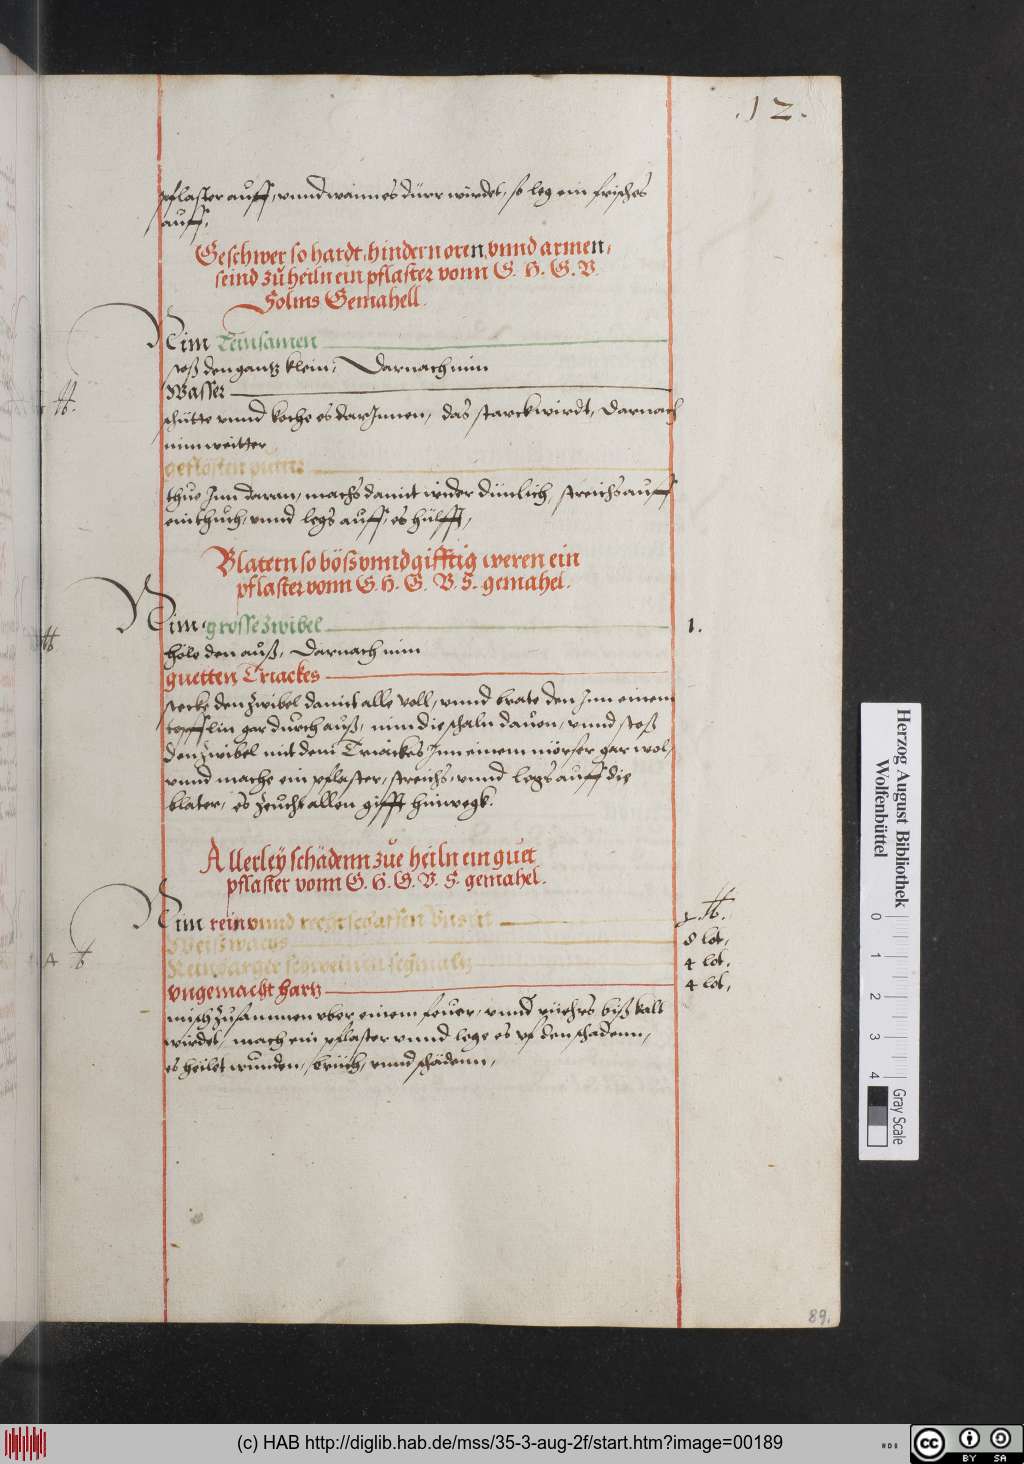 .12.
pflaster auff, vnnd wann es dürr würdet, so leg ein frisches
auff,
Geschwer so hardt, hindern oren, vnnd armen,
seind zu heiln ein pflaster vonn G. H. G. V.
Solms Gemahell.
Nim Leinsamen
stoß den gantz klein, Darnach nim
Wasser
schütte vnnd koche es darJnnen, das starck wirdt, Darnach
nim weitter
thue Jnn daran, machs damit wider dünlich, streichs auff
ein thuch, vnnd legs auff, es hülfft,
Blatern so böss vnnd gifftig weren ein
pflaster vonn G. H. G. V. S. gemahel.
Nim grosse zwibel 1.
höle den auß, Darnach nim
guetten Triackes
stecke den Zwibel damit alle voll, vnnd brate den Jnn einem
topfflin gar durch auß, nim die schaln dauon, vnnd stoß
den Zwibel mit dem Triackes Jnn einem mörser gar wol,
vnnd mache ein pflaster, streichs, vnnd legs auff die
blater, es zeucht allen gifft hinwegk.
Allerley schädenn zue heiln ein guet
pflaster vonn G. H. G. V. S. gemahel.
Nim rein vnnd recht geschaffen
Weiß wachs 8 lot,
schweinen schmaltz 4 lot.
vngemacht hartz 4 lot,
misch zusammen vber einem feuer, vnnd rüehrs biß kalt
würdet, mach ein pflaster vnnd lege es vf den schadenn,
es heilet wunden, brüch, vnnd schädenn,
89.
Herzog August Bibliothek
Wolfenbüttel
0 1 2 3 4
Gray Scale
(c) HAB http://diglib.hab.de/mss/35-3-aug-2f/start.htm?image=00189
cc BY SA